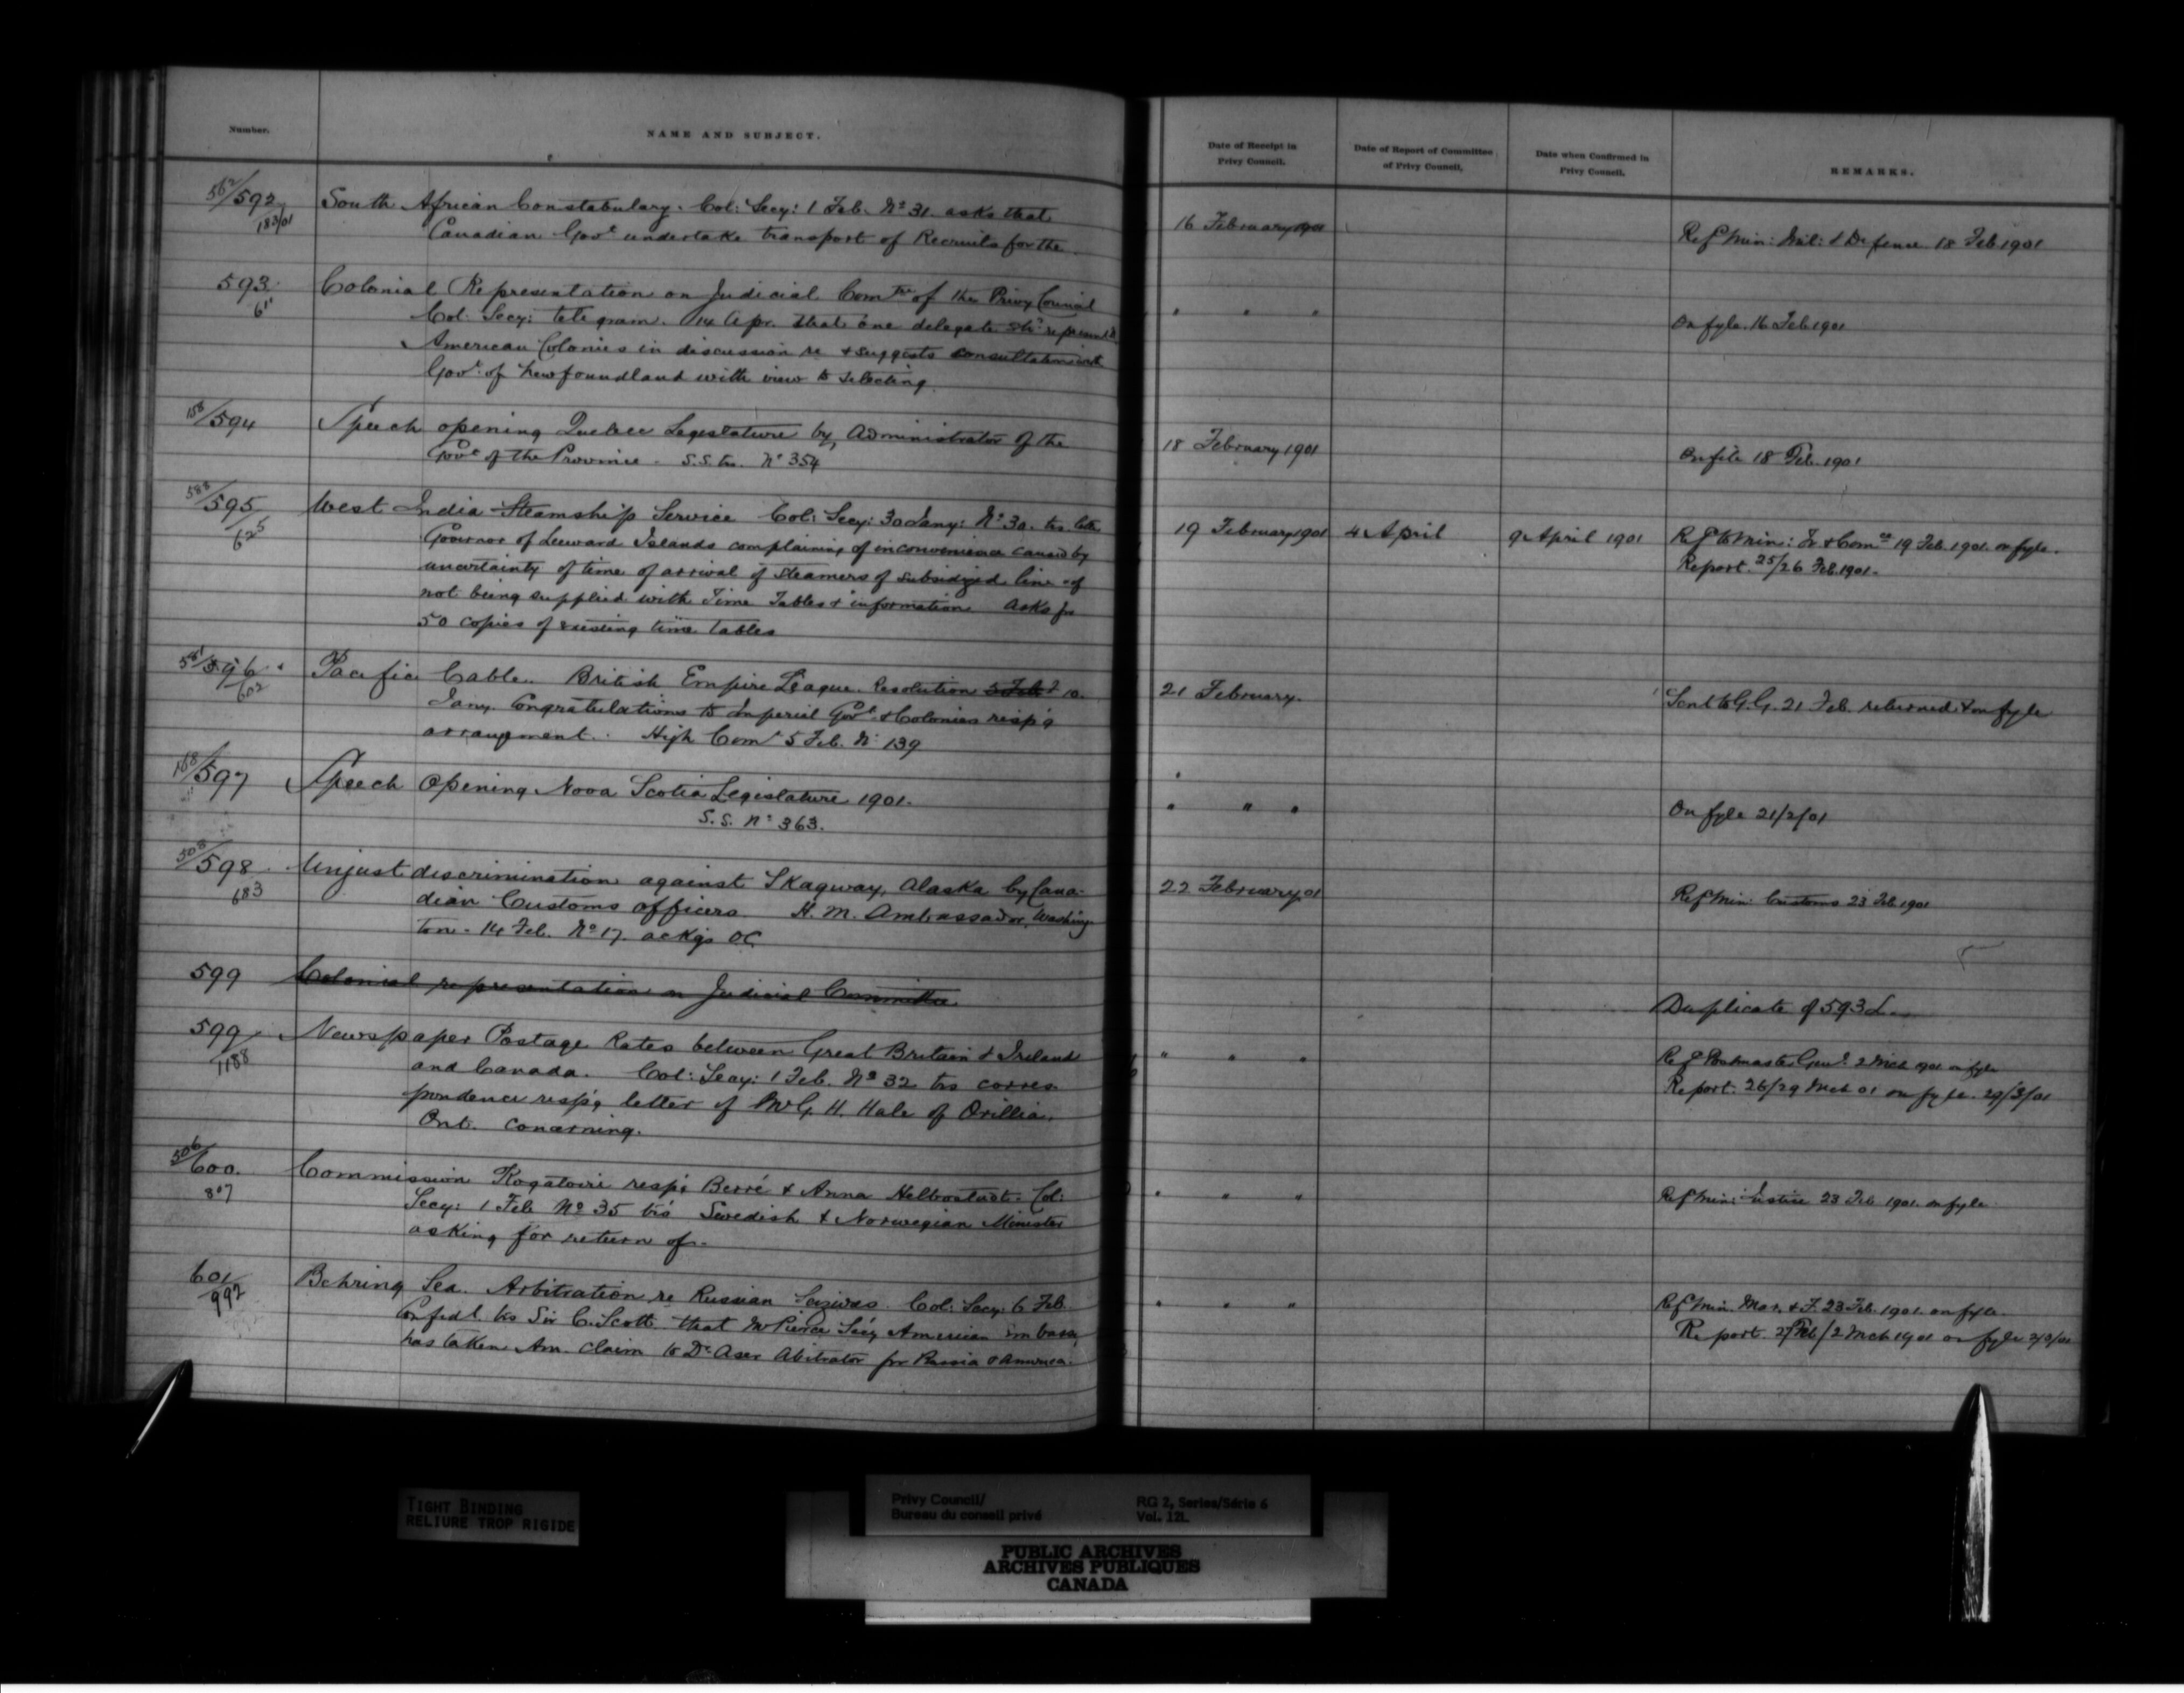 Number.
NAME AND SUBJECT.
Date of Receipt in
Privy Council.
Date of Report of Committee
of Privy Council,
Date when Confirmed in
Privy Council.
REMARKS.
562/592
183/01
South African Constabulary. Col: Secy: 1 Feb. No 31. asks that
Canadian Govt undertake transport of Recruits for the
16 February 1901
Ref Min: Mil: & Defence 18 Feb 1901
593
61
Colonial Representation on Judicial Comtee of the Privy Council
Col. Secy: telegram. 14 Apr. that one delegate shd represent
American Colonies in discussion re & suggests consultation with
Govt. of Newfoundland with view to selecting
" " "
On fyle. 16 Feb 1901
158/594
Speech opening Quebec Legislature by Administrator of the
Govt of the Province - S.S. trs. No 354
18 February 1901
On file 18 Feb. 1901
588/595
625
West India Steamship Service Col: Secy: 30 Jany: No 30. trs. letter
Governor of Leeward Islands complaining of inconvenience caused by
uncertainty of time of arrival of Steamers of subsidized line & of
not being supplied with Time Tables & information Asks for
50 copies of existing time tables
19 February 1901
4 April
9 April 1901
Ref to Min: Tr & Comce 19 Feb. 1901. on fyle.
Report. 25/26 Feb. 1901.
581/596
602
Pacific Cable. British Empire League. Resolution 10
Jany. Congratulations to Imperial Govt. & Colonies resp'g
arrangement. High Comr 5 Feb. No 139
21 February.
Sent to G.G. 21 Feb. returned & on fyle
168/597
Speech Opening Nova Scotia Legislature 1901.
S.S. No 363.
" " "
On fyle 21/2/01
508/598
183
Unjust discrimination against Skagway, Alaska by Cana-
dian Customs officers. H. M. Ambassador, Washing-
ton - 14 Feb. No 17. ackgs OC
22 February 01
Ref Min: Customs 23 Feb. 1901
599
Colonial representation on Judicial Committee
Duplicate of 593
599
1188
Newspaper Postage Rates between Great Britain & Ireland
and Canada. Col: Secy: 1 Feb. No 32 trs corres-
pondence resp'g letter of Mr G. H. Hale of Orillia.
Ont. concerning.
" " "
Ref Postmaster Genl. 2 Mch 1901 on fyle
Report. 26/29 Mch 01 on fyle. 29/3/01
506/600.
807
Commission Rogatoire resp'g Berré & Anna Col:
Secy: 1 Feb No 35 trs Swedish & Norwegian Minister
asking for return of.
" " "
Ref Min: Justice 23 Feb 1901. on fyle
601
992
Behring Sea. Arbitration re Russian Seizures. Col: Secy: 6 Feb.
Confdl. trs Sir C. Scott. that Mr Pierce Secy American Embassy
has taken Am. claim to Dr Aser Abitrator for Russia & America.
" " "
Ref Min. Mar. & F. 23 Feb. 1901. on fyle.
Report. 27 Feb/2 Mch 1901 on fyle 2/3/01
TIGHT BINDING
RELIURE TROP RIGIDE
Privy Council/
Bureau du conseil privé
RG 2, Series/Série 6
Vol. 121.
PUBLIC ARCHIVES
ARCHIVES PUBLIQUES
CANADA